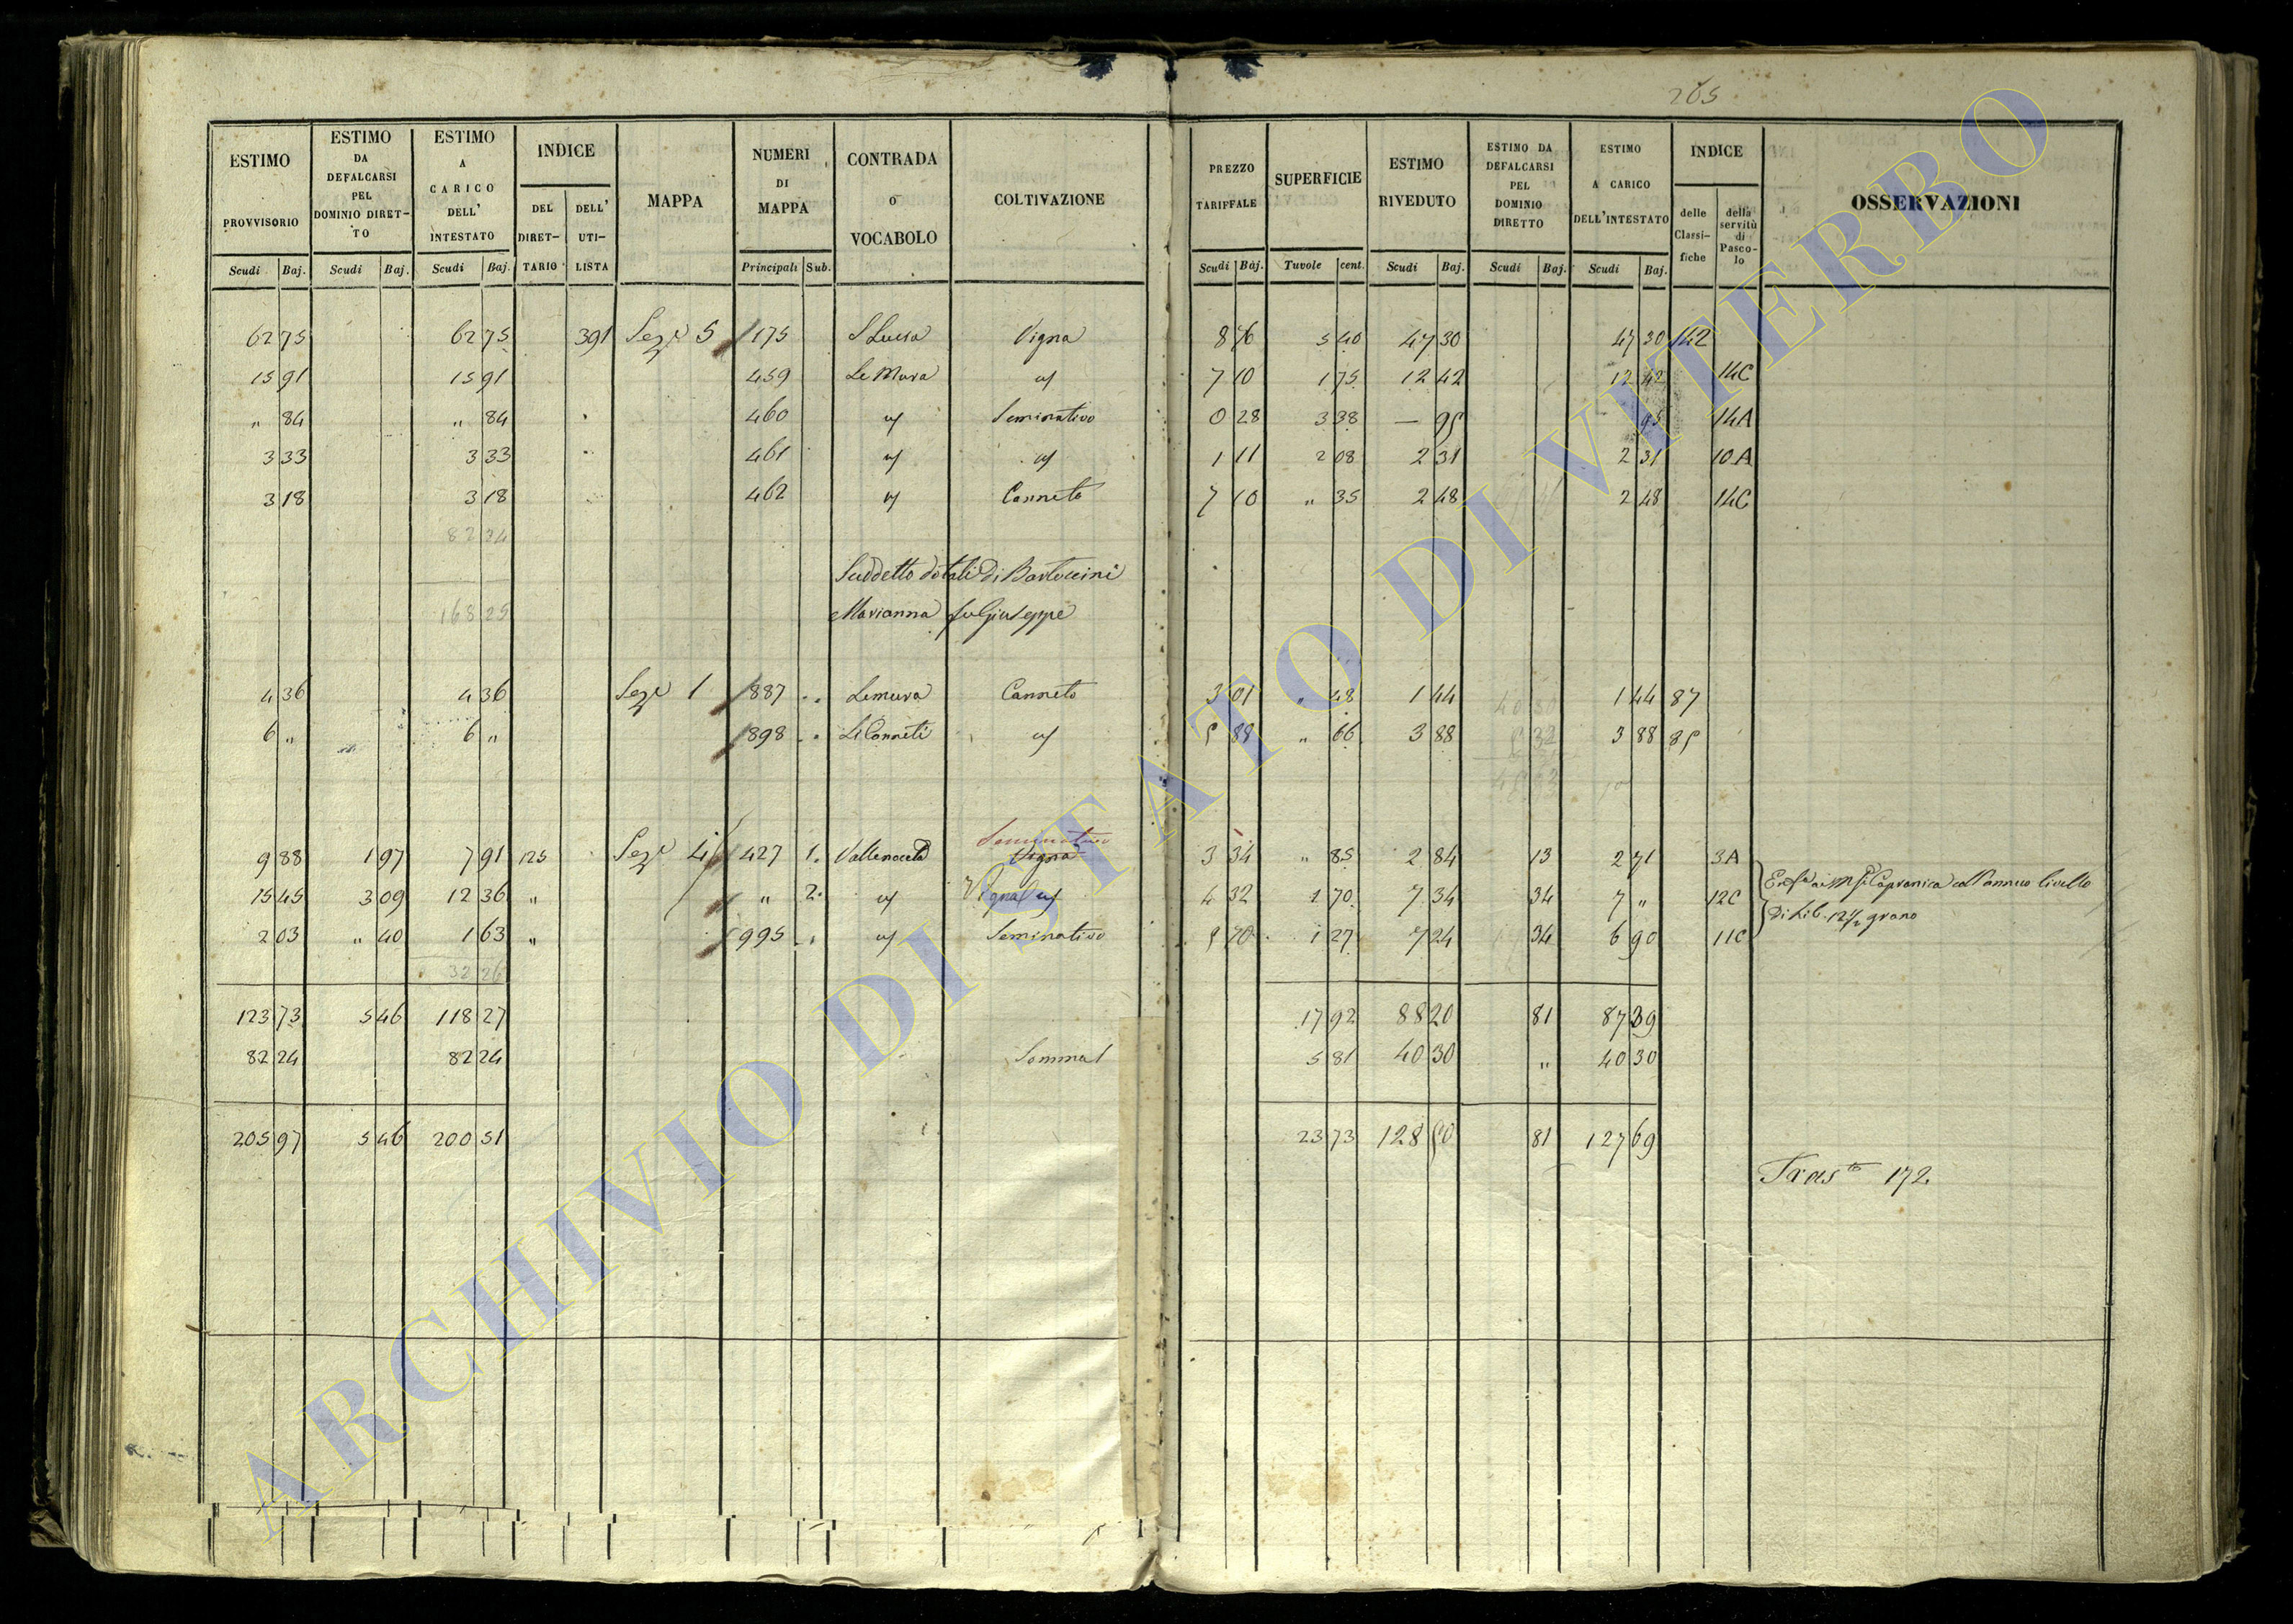 265
ESTIMO PROVVISORIO Scudi Baj. | ESTIMO DA DEFALCARSI PEL DOMINIO DIRET-TO Scudi Baj. | ESTIMO A CARICO DELL' INTESTATO Scudi Baj. | INDICE DEL DIRET-TARIO | DELL' UTI-LISTA | MAPPA | NUMERI DI MAPPA Principali Sub. | CONTRADA O VOCABOLO | COLTIVAZIONE | PREZZO TARIFFALE Scudi Baj. | SUPERFICIE Tuvole cent. | ESTIMO RIVEDUTO Scudi Baj. | ESTIMO DA DEFALCARSI PEL DOMINIO DIRETTO Scudi Baj. | ESTIMO A CARICO DELL'INTESTATO Scudi Baj. | INDICE delle Classi-fiche | della servitù di Pasco-lo | OSSERVAZIONI
62 75 62 75 391 Sez.e 5 175 S Lucia Vigna 8 76 5 40 47 30 47 30 142
15 91 15 91 459 Le Mura " 7 10 1 75 12 42 12 42 14C
" 84 " 84 460 " Seminativo 0 28 3 38 — 95 95 14A
3 33 3 33 461 " " 1 11 2 08 2 31 2 31 10A
3 18 3 18 462 " Canneto 7 10 " 35 2 48 2 48 14C
82 24
Suddetto dotali di Bartoccini
168 25 Marianna fu Giuseppe
4 36 4 36 Sez.e 1 887 Lemura Canneto 3 01 " 48 1 44 1 44 87
6 " 6 " 898 Li Canneti " 5 88 " 66 3 88 3 88 85
Seminativo
9 88 1 97 7 91 125 Sez.e 4 427 1. Vallenocela Vigna 3 34 " 85 2 84 13 2 71 3A
15 45 3 09 12 36 " " 2. " Vigna " 4 32 1 70 7 34 34 7 " 12C Capranica coll'annuo livello
2 03 " 40 1 63 " 995 " Seminativo 5 70 1 27 7 24 34 6 90 11C di Lib. 12½ grano
32 26
123 73 5 46 118 27 17 92 88 20 81 87 39
82 24 82 24 Somma 5 81 40 30 " 40 30
205 97 5 46 200 51 23 73 128 50 81 127 69
Tras.to 172.
ARCHIVIO DI STATO DI VITERBO